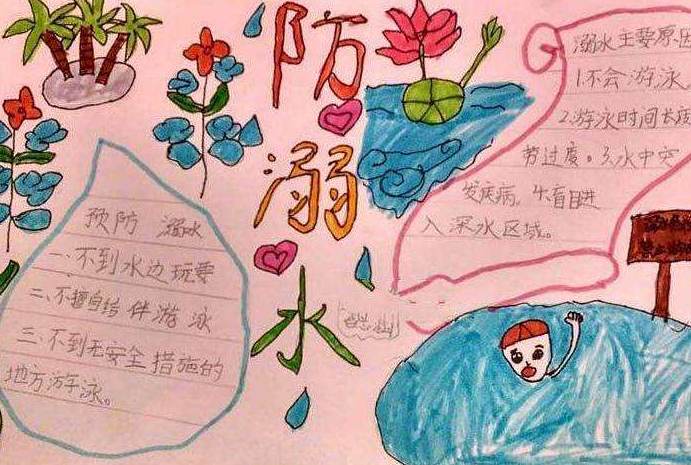 防
溺
水
预防 溺水
一、不到水边玩耍
二、不擅自结伴游泳
三、不到无安全措施的
地方游泳。
溺水主要原因
1.不会游泳。
2.游泳时间长疲
劳过度。3.水中突
发疾病。4.盲目进
入深水区域。